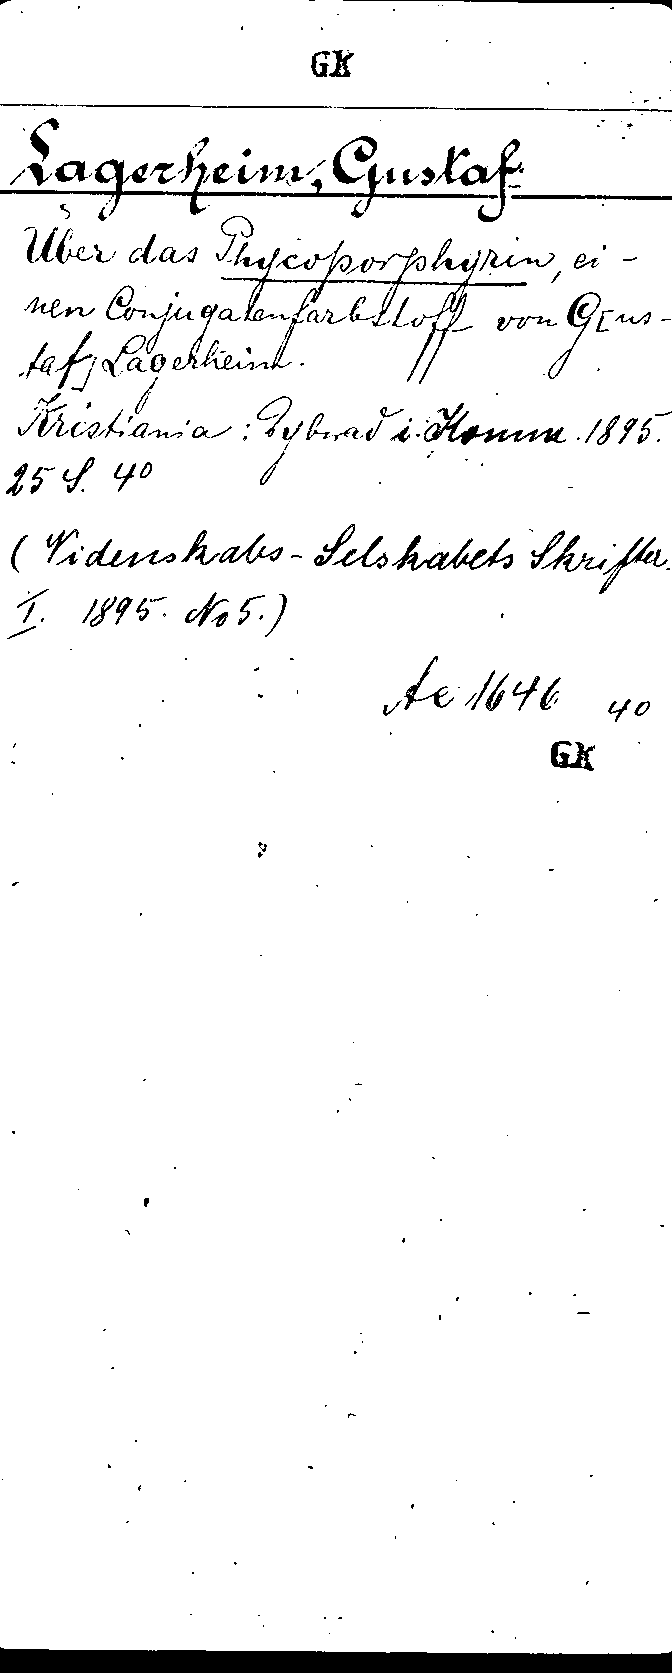 GK
Lagerheim, Gustaf
Über das Phycoporphyrin, ei-
nen Conjugatenfarbstoff von G[us-
taf] Lagerheim.
Kristiania: Dybwad i. Komm. 1895.
25 S. 4o
(Videnskabs-Selskabets Skrifter.
I. 1895. No 5.)
Ae 1646 4o
GK